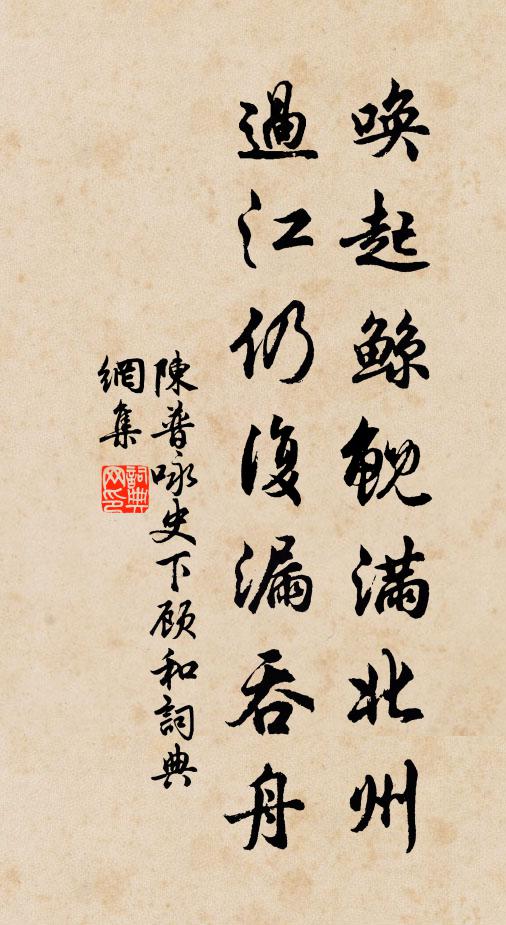 喚起鯨鯢滿北州
過江仍復漏吞舟
陳普咏史下顾和詞典
網集
詞典網印